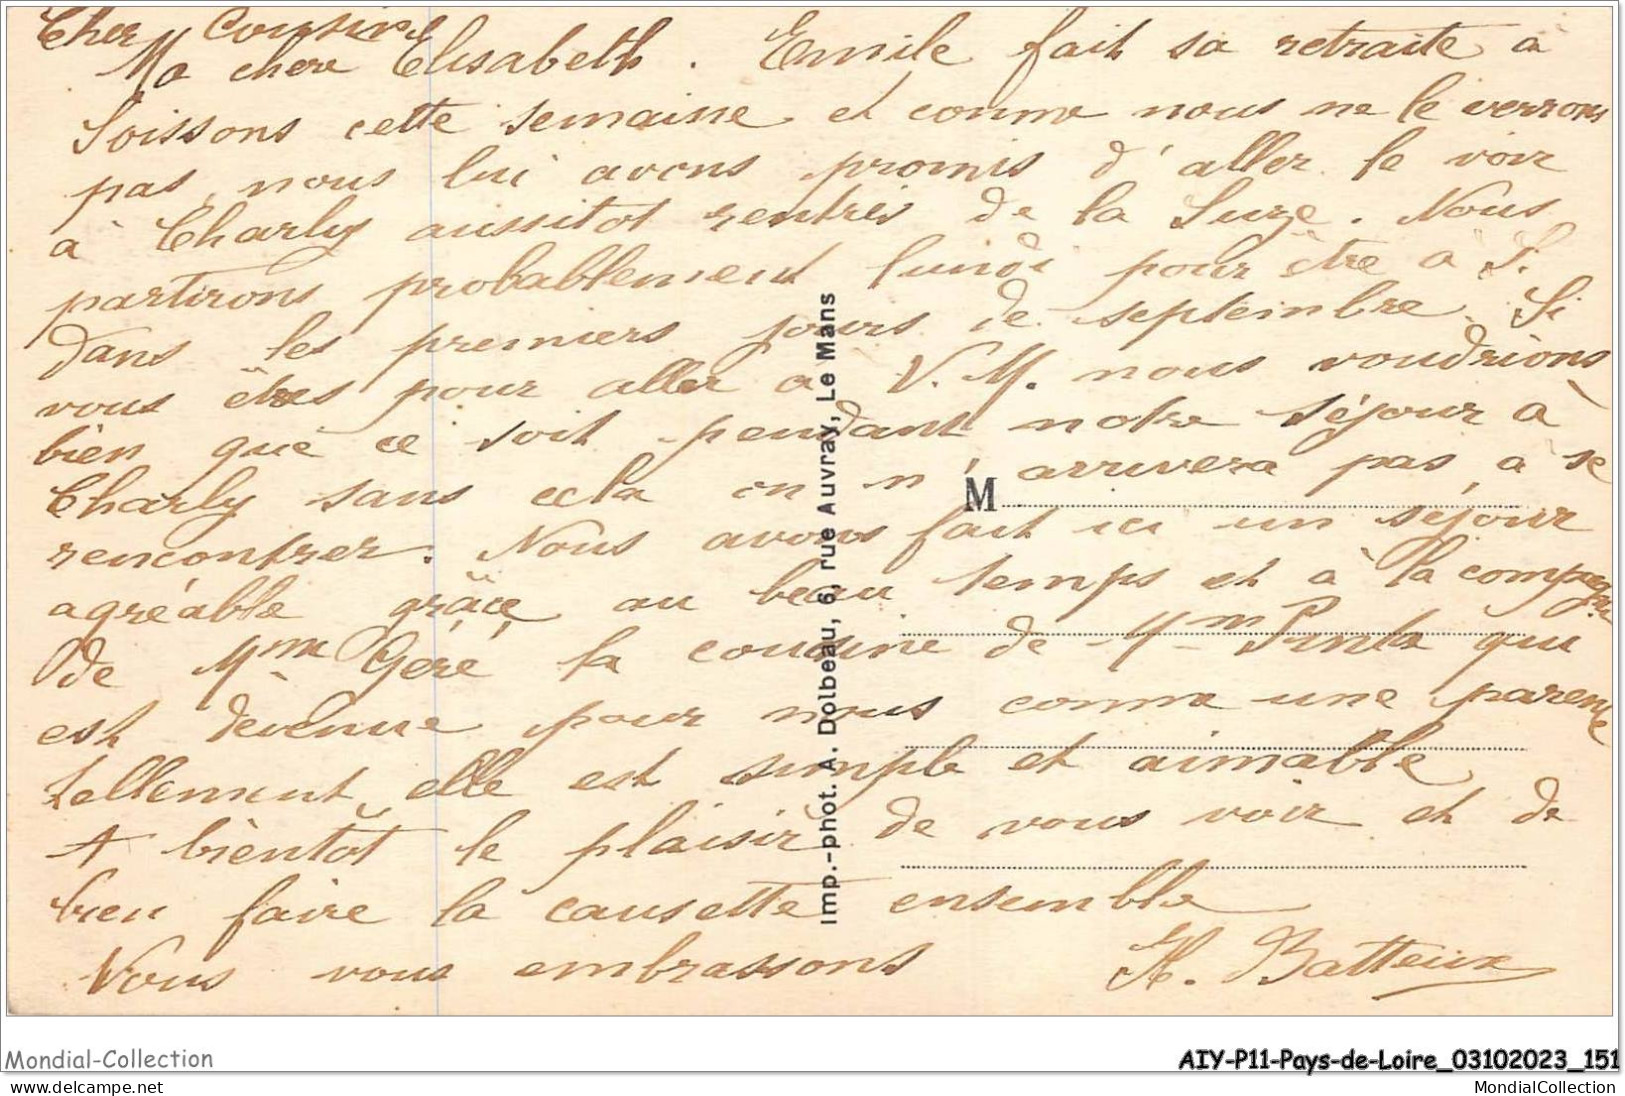 Cher Cousin
Ma chere Elisabeth. Emile fait sa retraite à
Soissons cette semaine et comme nous ne le verrons
pas, nous lui avons promis d'aller le voir
à Charly aussitot rentrés de la Suze. Nous
partirons probablement lundi pour être à S.
dans les premiers jours de septembre. Si
vous êtes pour aller a V. M. nous voudrions
bien que ce soit pendant notre séjour à
Charly sans cela on n'arrivera pas à se
rencontrer. Nous avons fait ici un séjour
agréable grâce au beau temps et à la compagnie
de Mme Géré la cousine de Mme qui
est devenue pour nous comme une parente
tellement elle est simple et aimable
A bientôt le plaisir de vous voir et de
bien faire la causette ensemble
Nous vous embrassons H. Batteux
M
Imp.-phot. A. Dolbeau, 6, rue Auvray, Le Mans
Mondial-Collection
AIY-P11-Pays-de-Loire_03102023_151
www.delcampe.net
MondialCollection